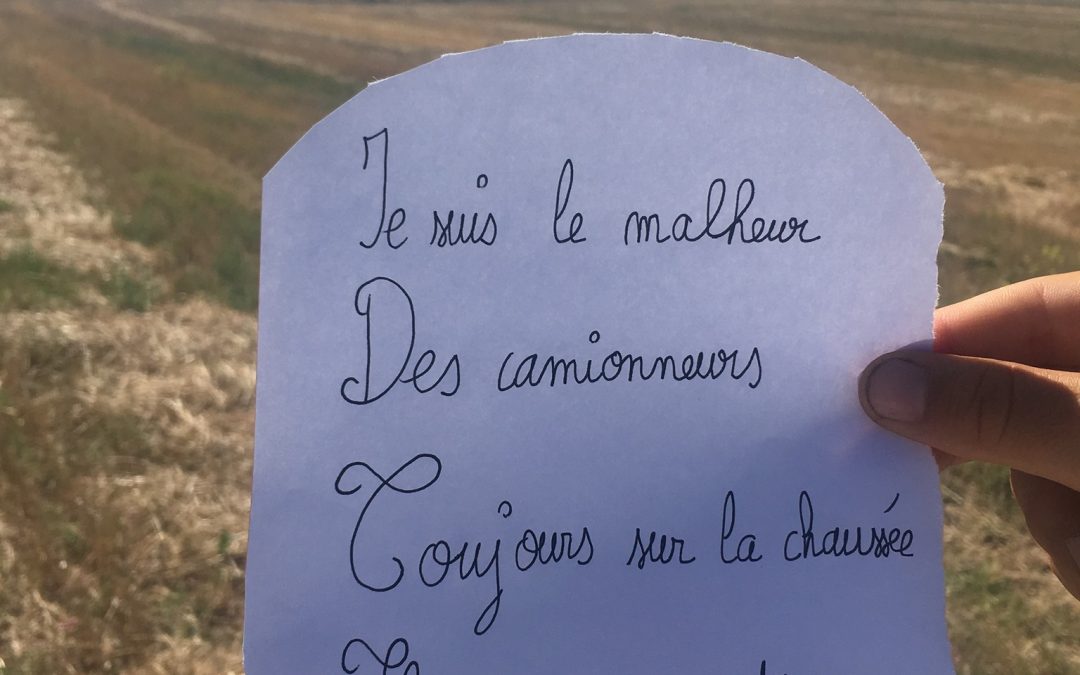 Je suis le malheur
Des camionneurs
Toujours sur la chaussée